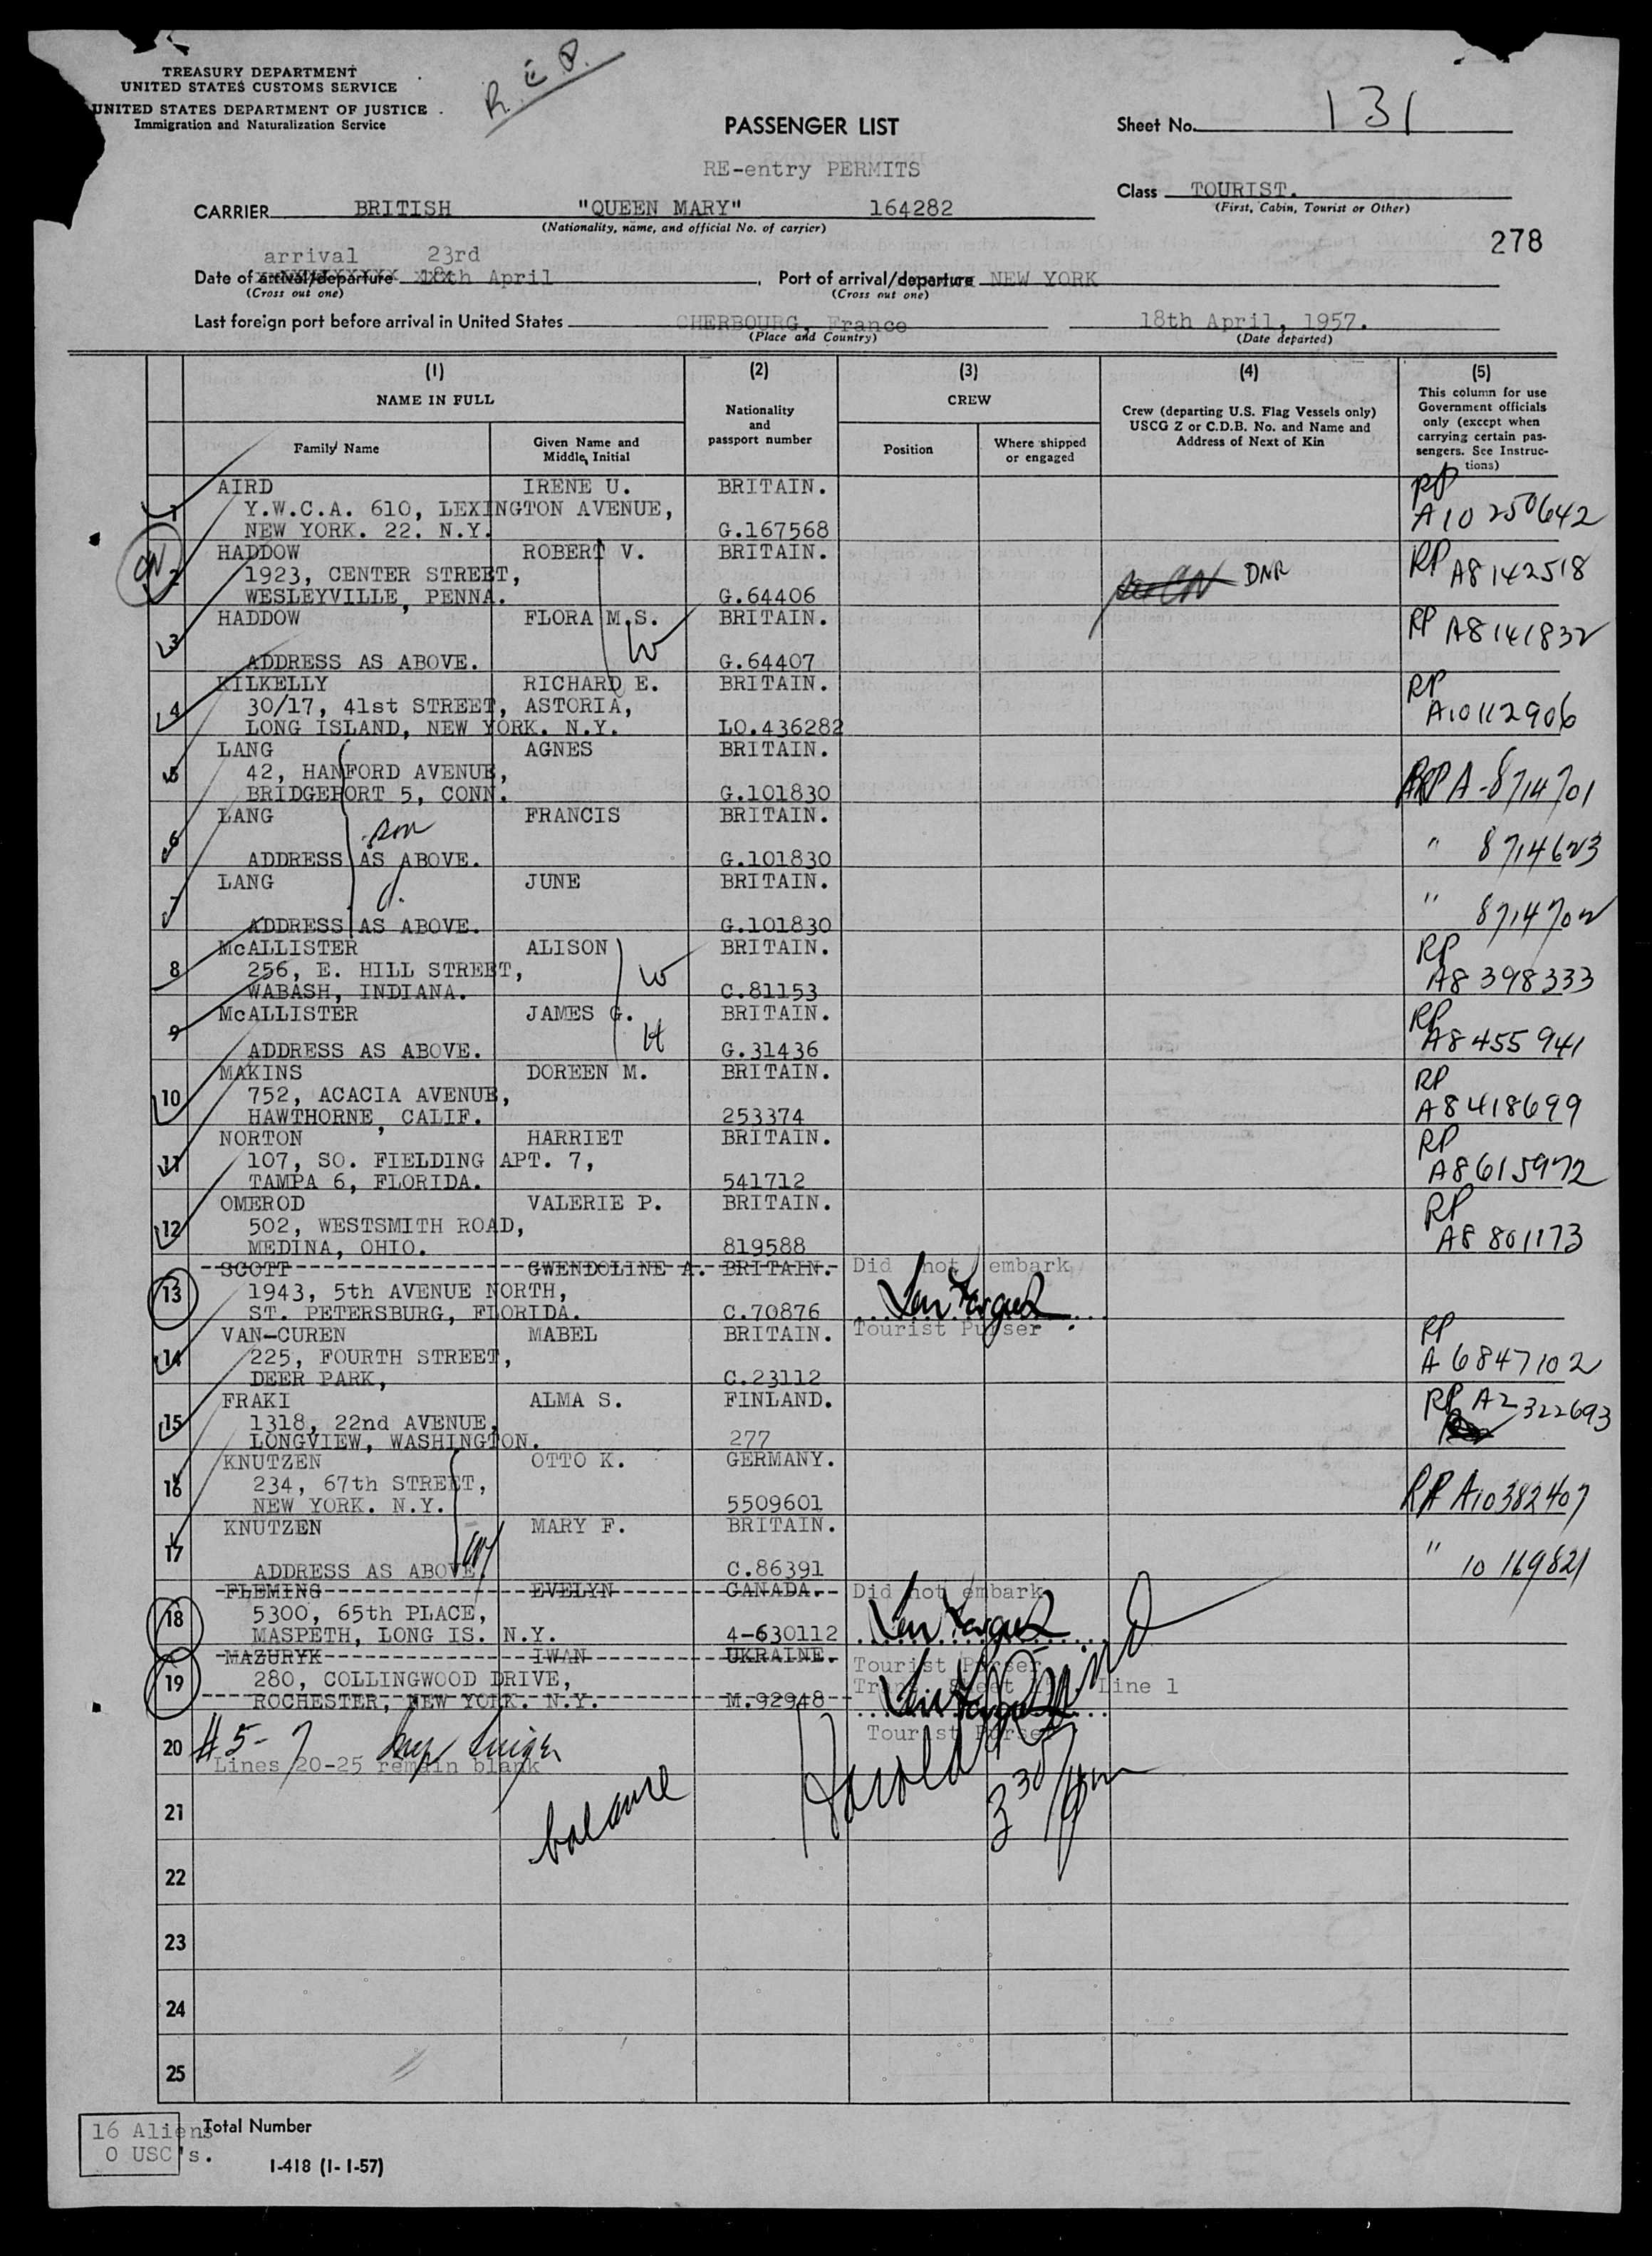 TREASURY DEPARTMENT
UNITED STATES CUSTOMS SERVICE
UNITED STATES DEPARTMENT OF JUSTICE
Immigration and Naturalization Service
PASSENGER LIST
Sheet No. 131
RE-entry PERMITS
Class TOURIST.
(First, Cabin, Tourist or Other)
CARRIER BRITISH "QUEEN MARY" 164282
(Nationality, name, and official No. of carrier)
278
arrival 23rd
Date of arrival/departure 18th April Port of arrival/departure NEW YORK
(Cross out one) (Cross out one)
Last foreign port before arrival in United States CHERBOURG, France 18th April, 1957.
(Place and Country) (Date departed)
(1) (2) (3) (4) (5)
NAME IN FULL
Family Name
Given Name and Middle Initial
Nationality and passport number
CREW
Position
Where shipped or engaged
Crew (departing U.S. Flag Vessels only) USCG Z or C.D.B. No. and Name and Address of Next of Kin
This column for use Government officials only (except when carrying certain passengers. See Instructions)
1 AIRD IRENE U. BRITAIN. RP
Y.W.C.A. 610, LEXINGTON AVENUE, A10 250642
NEW YORK. 22. N.Y. G.167568
2 HADDOW ROBERT V. BRITAIN. DNR RP A8142518
1923, CENTER STREET,
WESLEYVILLE, PENNA. G.64406
3 HADDOW FLORA M.S. BRITAIN. RP A8141832
W
ADDRESS AS ABOVE. G.64407
4 KILKELLY RICHARD E. BRITAIN. RP
30/17, 41st STREET, ASTORIA, A10112906
LONG ISLAND, NEW YORK. N.Y. LO.436282
5 LANG AGNES BRITAIN.
42, HANFORD AVENUE, RP A-8714701
BRIDGEPORT 5, CONN. G.101830
6 LANG FRANCIS BRITAIN.
son " 8714623
ADDRESS AS ABOVE. G.101830
7 LANG JUNE BRITAIN.
d. " 8714702
ADDRESS AS ABOVE. G.101830
8 McALLISTER ALISON BRITAIN. RP
256, E. HILL STREET, W A8 398333
WABASH, INDIANA. C.81153
9 McALLISTER JAMES G. BRITAIN. RP
H A8455941
ADDRESS AS ABOVE. G.31436
10 MAKINS DOREEN M. BRITAIN. RP
752, ACACIA AVENUE, A8418699
HAWTHORNE, CALIF. 253374
11 NORTON HARRIET BRITAIN. RP
107, SO. FIELDING APT. 7, A8615972
TAMPA 6, FLORIDA. 541712
12 OMEROD VALERIE P. BRITAIN. RP
502, WESTSMITH ROAD, A8 801173
MEDINA, OHIO. 819588
13 SCOTT GWENDOLINE A. BRITAIN. Did not embark
1943, 5th AVENUE NORTH,
ST. PETERSBURG, FLORIDA. C.70876
Tourist Purser
14 VAN-CUREN MABEL BRITAIN. RP
225, FOURTH STREET, A6847102
DEER PARK, C.23112
15 FRAKI ALMA S. FINLAND. RP A2322693
1318, 22nd AVENUE,
LONGVIEW, WASHINGTON. 277
16 KNUTZEN OTTO K. GERMANY.
234, 67th STREET, RP A10382407
NEW YORK. N.Y. 5509601
17 KNUTZEN MARY F. BRITAIN.
" 10 169821
ADDRESS AS ABOVE. C.86391
18 FLEMING EVELYN CANADA. Did not embark
5300, 65th PLACE,
MASPETH, LONG IS. N.Y. 4-630112
19 MAZURYK IWAN UKRAINE. Tourist Purser
280, COLLINGWOOD DRIVE, Line 1
ROCHESTER, NEW YORK. N.Y. M.92948
Tourist Purser
20 #5-7
Lines 20-25 remain blank
balance Harold 3 30 pm
21
22
23
24
25
16 Aliens Total Number
0 USC's.
I-418 (1-1-57)